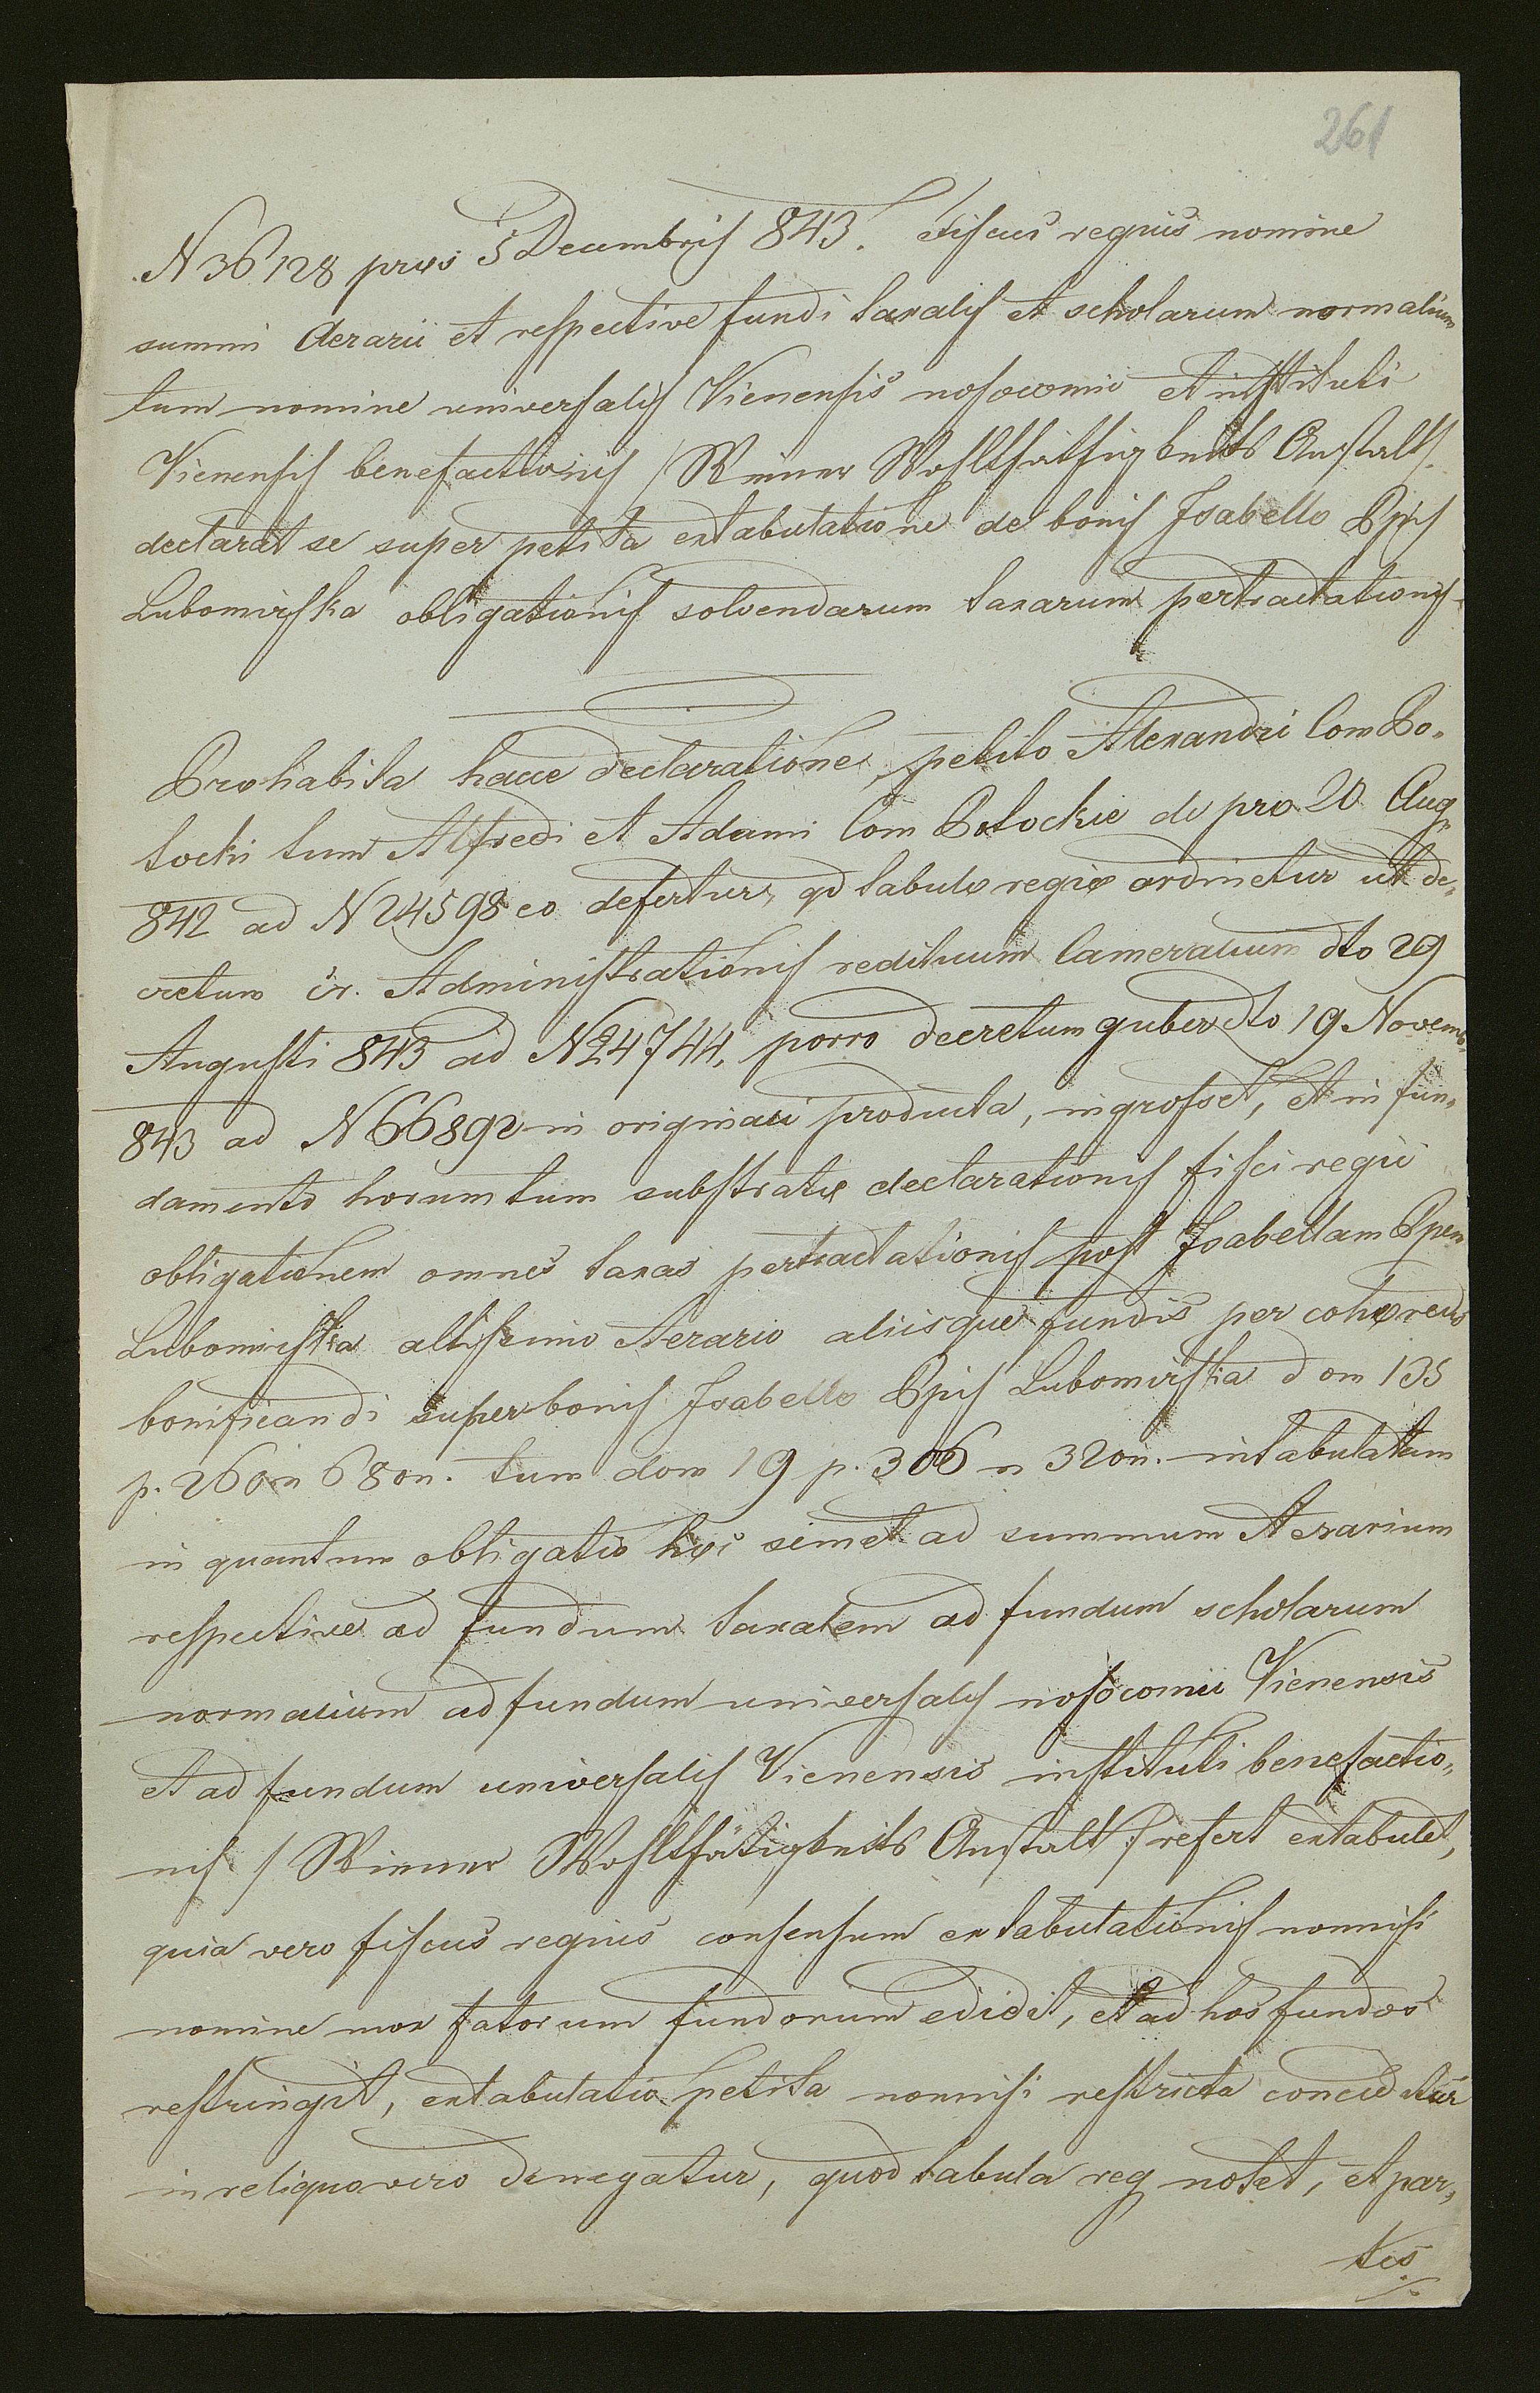 261
N 36128 præs 5 Decembris 843. Fiscus regius nomine
summi Aerarii et respective fundi taxalis et scholarum normalium
tum nomine universalis Vienensis nosocomii et instituti
Vienensis benefactionis /Wiener Wohlthäthigkeits Anstalt/
declarat se super petita extabulatione de bonis Isabellæ Ppis
Lubomirska obligationis solvendarum taxarum pertractationis
Prohabita hacce declaratione, petito Alexandri Com Po„
tocki tum Alfredi et Adami Com Potockie de pro 20 Aug
842 ad N 24598 eo defertur, qd tabulæ regiæ ordinetur ut de„
cretum cr. Administrationis redituum Cameralium dto 29
Augusti 843 ad N 24744, porro decretum guber dto 19 Novemb.
843 ad N 66892 in originali producta, ingrosset, et in fun„
damento horum tum substratæ declarationis fisci regii
obligationem omnes taxas pertractationis post Isabellam Ppem
Lubomirska altissimo Aerario aliisque fundis per cohæredes
bonificandi super bonis Isabellæ Ppis Lubomirska dom 135
p. 260 n 68 on. tum dom 19 p. 306 n 32 on. intabulatam
in quantum obligatio hæc semet ad summum Aerarium
respective ad fundum taxalem ad fundum scholarum
normalium ad fundum universalis nosocomii Vienensis
et ad fundum universalis Vienensis instituti benefactio„
nis / Wiener Wohlthätigkeits Anstalt / refert extabulet,
quia vero fiscus regius consensum extabulationis nonnisi
nomine mox fatorum fundorum edidit, et ad hos fundos
restringit, extabulatio petita nonnisi restricta conceditur
in reliquo vero denegatur, quod tabula reg notet, et par„
tes